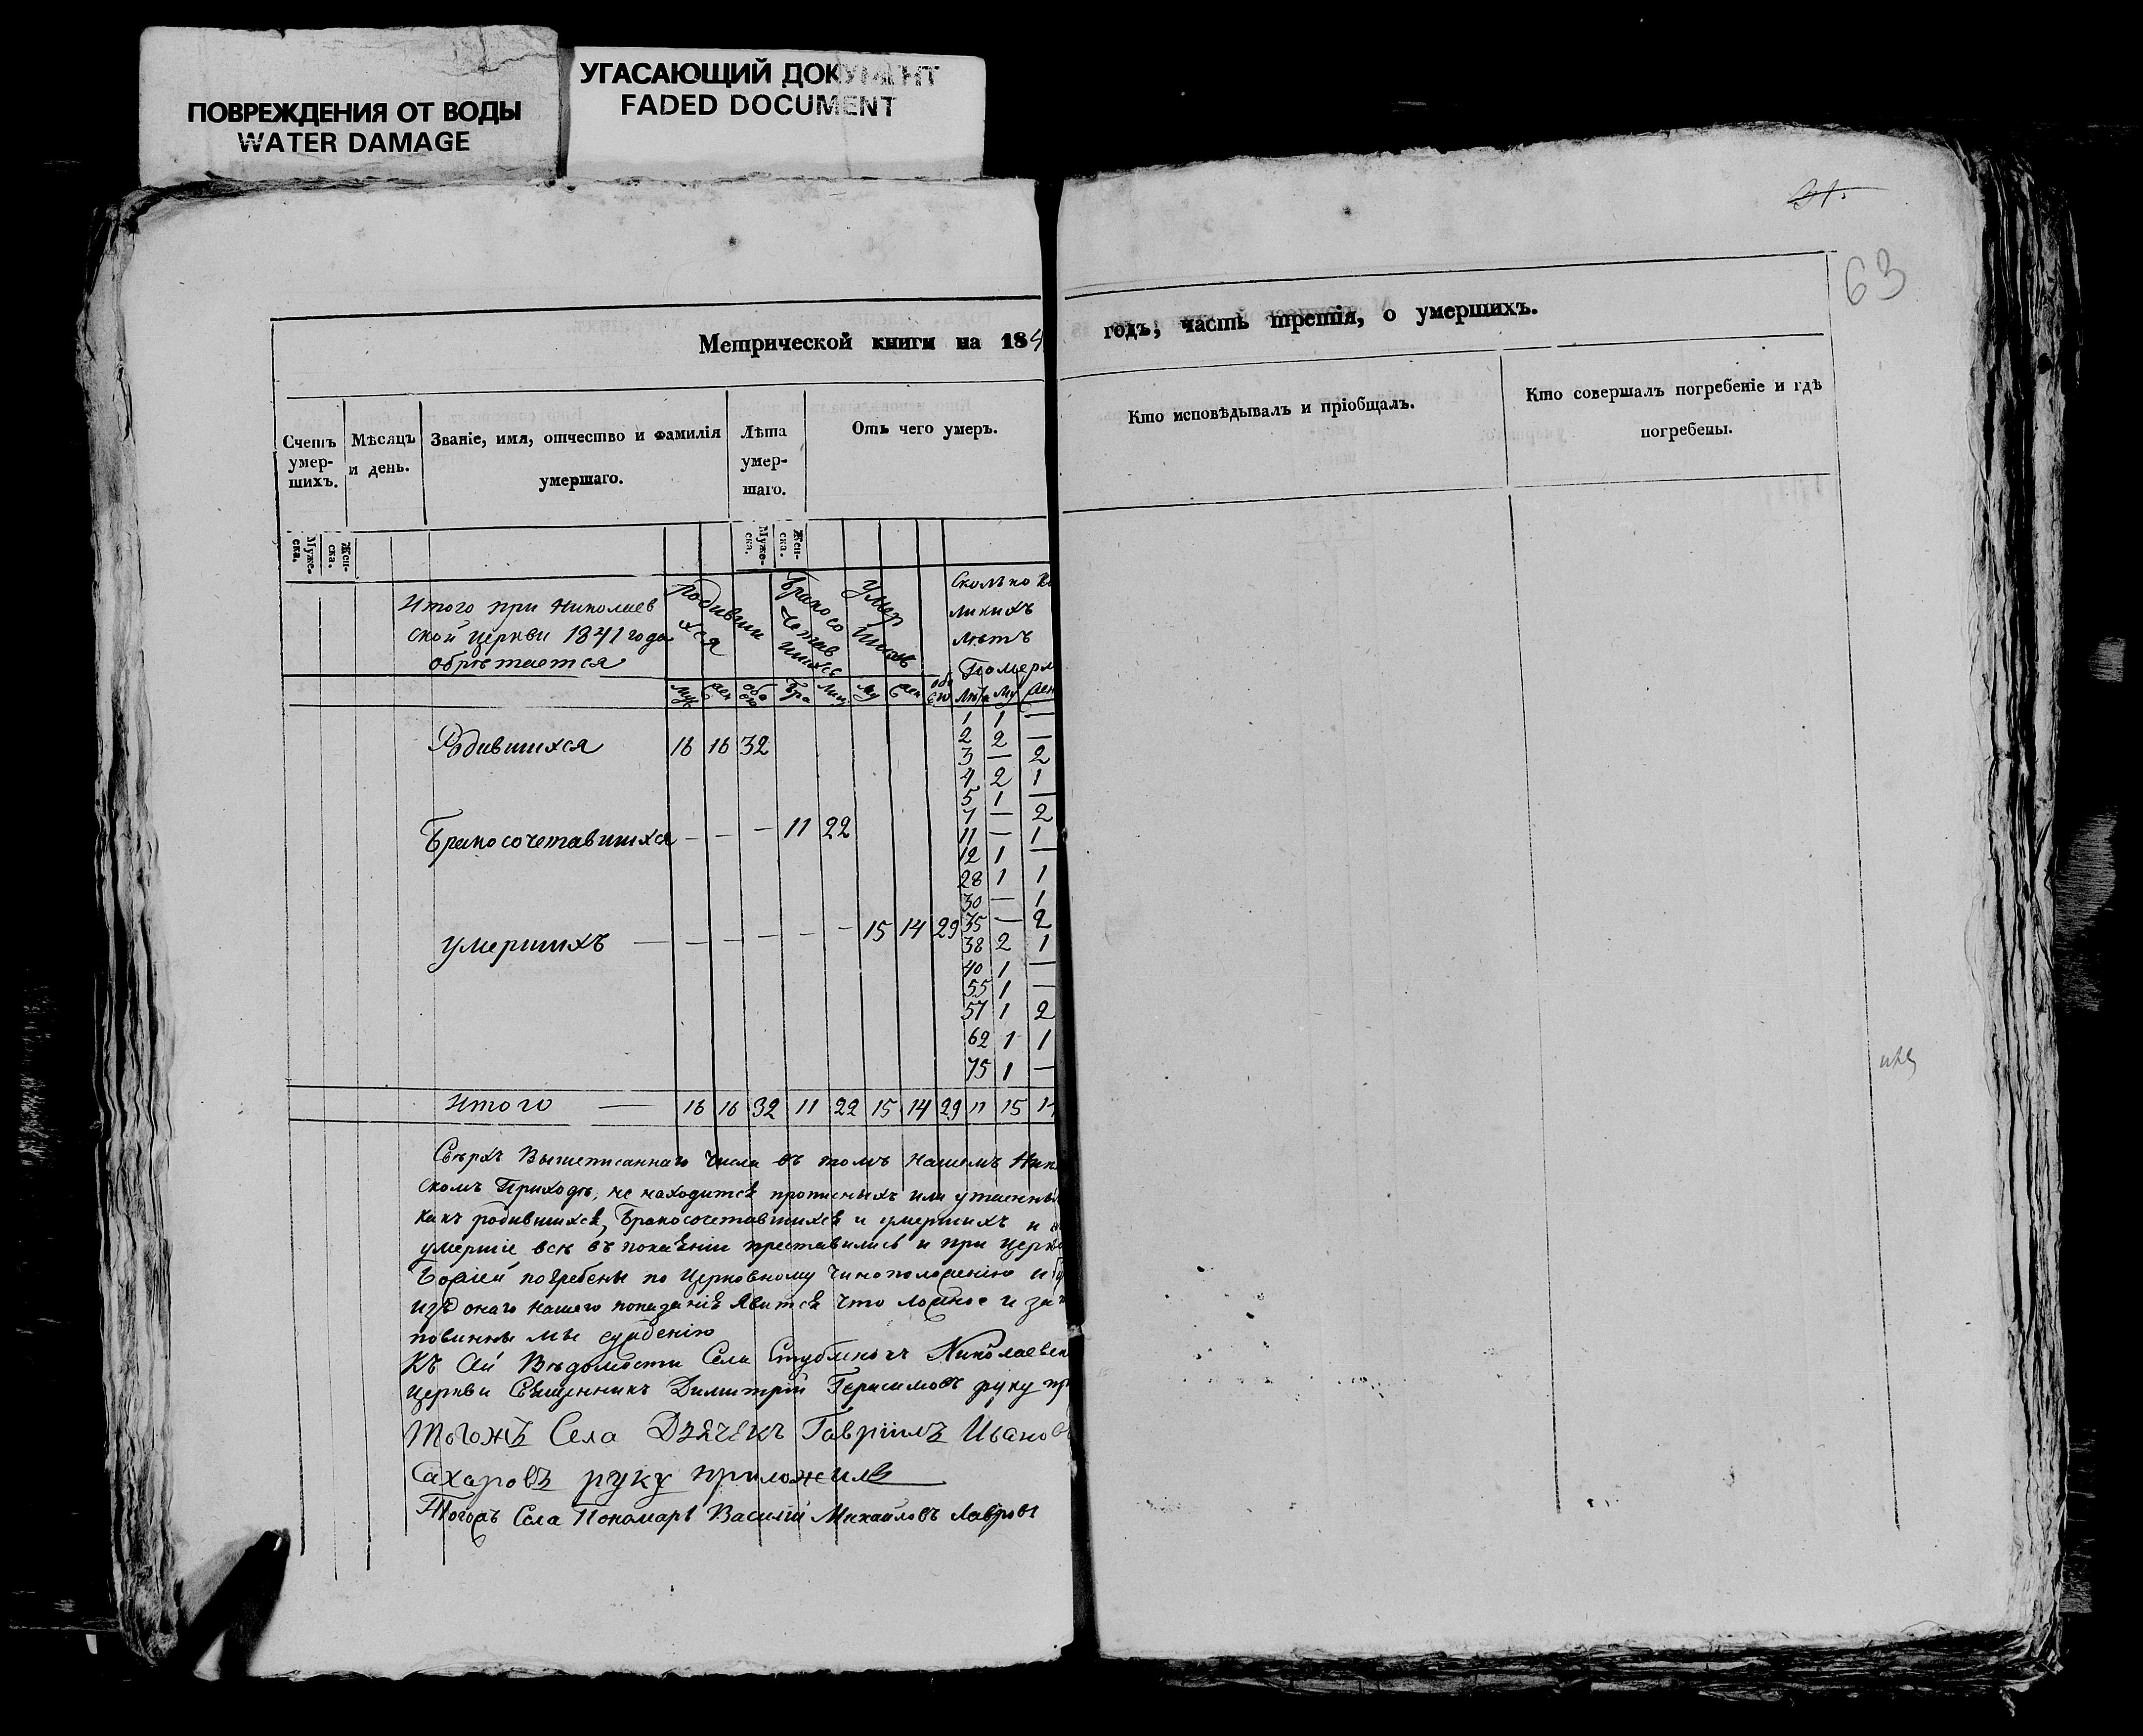 ПОВРЕЖДЕНИЯ ОТ ВОДЫ
WATER DAMAGE
УГАСАЮЩИЙ ДОКУМЕНТ
FADED DOCUMENT
63
Метрической книги на 184
годъ, часть третія, о умершихъ.
Счетъ умер-шихъ.
Мѣсяцъ и день.
Званіе, имя, отчество и фамилія умершаго.
Лѣта умер-шаго.
Отъ чего умеръ.
Кто исповѣдывалъ и пріобщалъ.
Кто совершалъ погребеніе и гдѣ погребены.
Муже-ска.
Жен-ска.
Муже-ска.
Жен-ска.
Итого при Николаев
ской церкви 1841 года
обрѣтается
Родивши хся
Бракосо четав шихся
Умер шихъ
Сколько
ликихъ
лѣтъ
Помер
Родившихся 16 16 32
Бракосочетавшихся — — — 11 22
умершихъ — — — — — — 15 14 29
1 1 —
2 2 —
3 — 2
4 2 1
5 1 —
7 — 2
11 — 1
12 1 —
28 1 1
30 — 1
35 — 2
38 2 1
40 1 —
55 1 —
57 1 2
62 1 1
75 1 —
Итого — 16 16 32 11 22 15 14 29 11 15
Сверхъ Вышеписаннаго числа въ томъ нашемъ
скомъ Приходѣ, не находится прописныхъ или
какъ родившихся, Бракосочетавшихся и умершихъ и
умершіе всѣ въ покаяніи преставились и при
Божіей погребены по Церковному чиноположенію и
изъ онаго нашего показанія явится что ложное и за
повинны мы суждению
Къ сей Вѣдомости Села Стублянокъ
церкви Священникъ Димитрій Герасимовъ руку
тогожъ Села Дьячекъ Гавріилъ Иванов
Сахаровъ руку приложилъ
Тогожъ Села Пономарь Василій Михайловъ Лавровъ